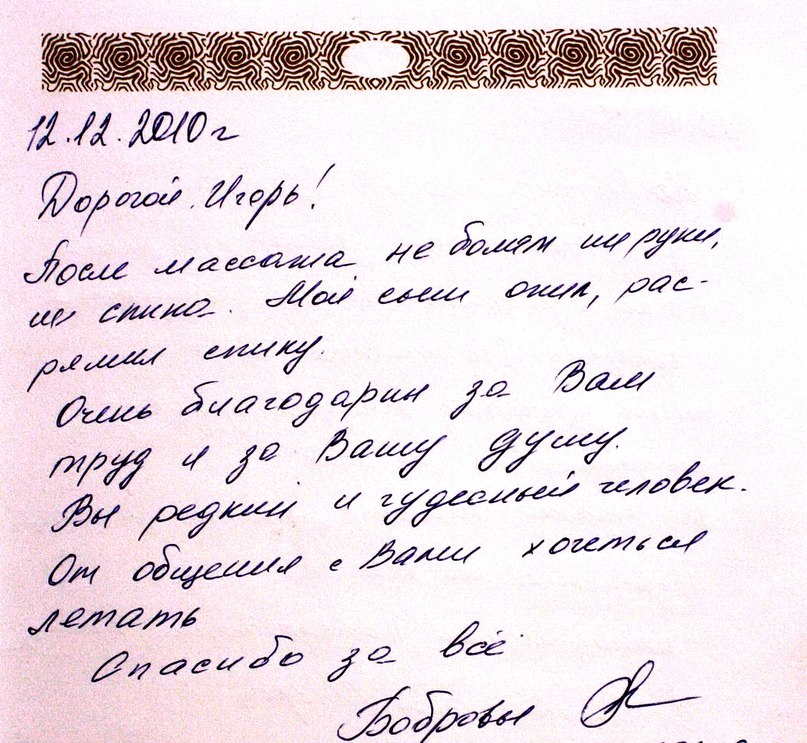 12.12.2010г
Дорогой Игорь!
После массажа не болят ни руки,
ни спина. Мой сын ожил, рас-
рямил спину.
Очень благодарны за Ваш
труд и за Вашу душу.
Вы редкий и чудесный человек.
От общения с Вами хочеться
летать
Спасибо за всё
Бобровы